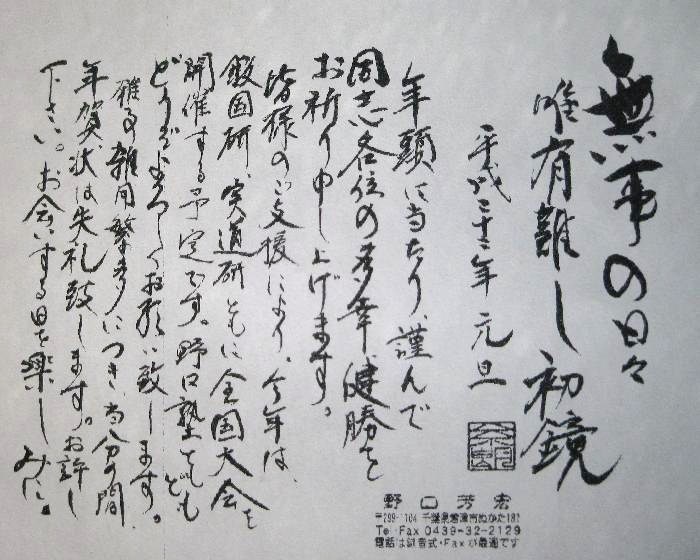 無事の日々
唯有難し初鏡
平成二十二年 元旦
年頭に当たり、謹んで
同志各位の多幸、健勝を
お祈り申し上げます。
皆様のご支援により、今年は、
鍛国研、実道研ともに全国大会を
開催する予定です。野口塾ともども
どうぞよろしくお願い致します。
雑用繁多につき、当分の間、
年賀状は失礼致します。お許し
下さい。お会いする日を楽しみに。
野口芳宏
〒299-1104 千葉県君津市ぬかた182
Tel・Fax 0439-32-2129
電話は録音式・Faxが最適です